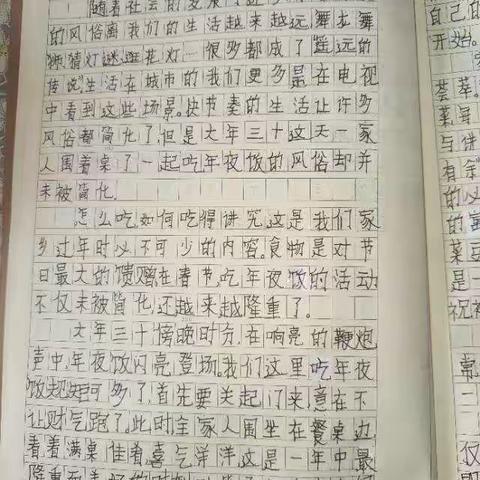 随着社会的发展
的风俗离我们的生活越来越远,舞龙舞
狮,猜灯谜,逛花灯…很多都成了遥远的
传说"生活在城市的我们更多是在电视
中看到这些场景。快节奏的生活让许多
风俗都简化了,但是大年三十这天一家
人围着桌了一起吃年夜饭的风俗却并
未被简化.
怎么吃,如何吃得讲究,这是我们家
乡过年时必不可少的内容。食物是对节
日最大的馈赠,在春节,吃年夜饭的活动
不仅未被简化,还越来越隆重了。
大年三十傍晚时分,在响亮的鞭炮
声中,年夜饭闪亮登场。我们这里吃年夜
饭规矩可多了,首先要关起门来,意在不
让财气跑了,此时全家人围坐在餐桌边
看着满桌佳肴,喜气洋洋,这是一年中最
隆重
自己的
开始。
荟萃。
菜导
与佳
有余
的必
的寓
菜豆
是一
祝福
常
二
二
仅
即